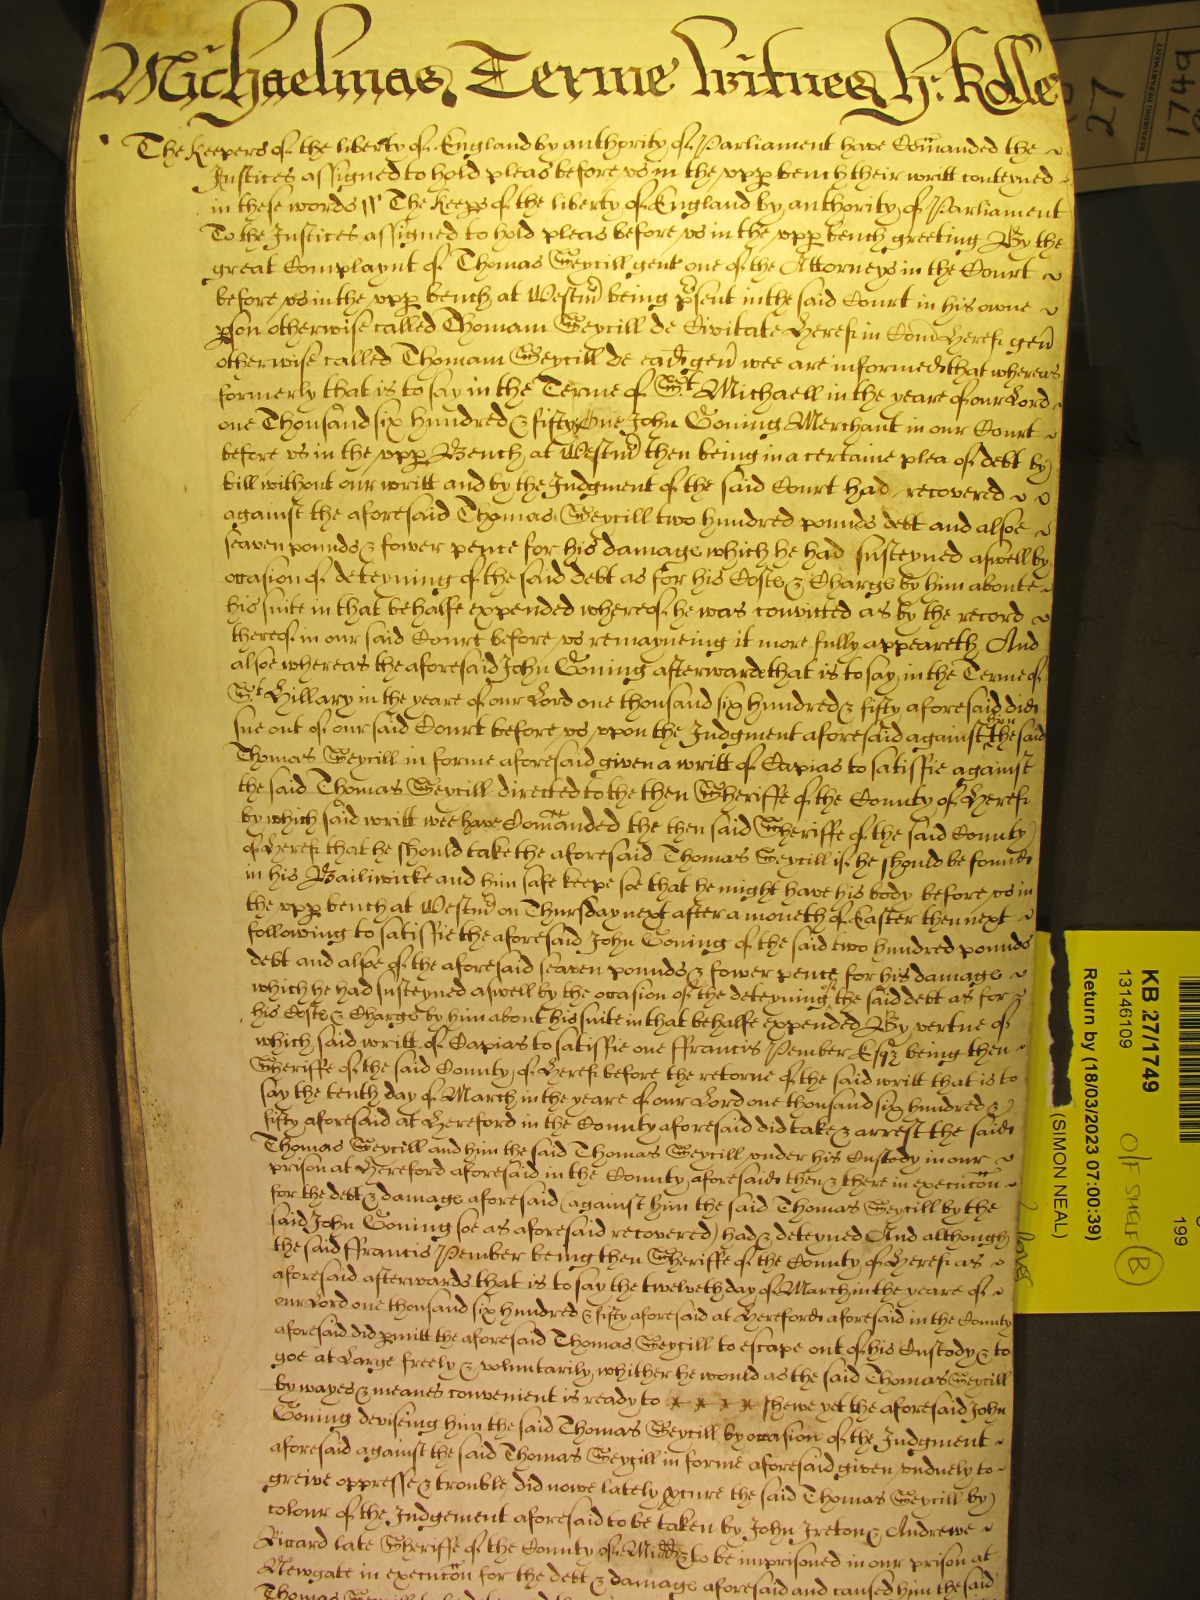 Michaelmas Terme Witnes H: Rolle
The Keepers of the liberty of England by authority of Parliament have Comanded the
Justices assigned to hold pleas before us in the upp bench their writt conteyned
in these words The Keeps of the liberty of England by authority of Parliament
To the Justices assigned to hold pleas before us in the upp bench greeting By the
great Complaynt of Thomas Seycill gent one of the Attorneys in the Court
before us in the upp bench at Westm being psent in the said Court in his owne
pson otherwise called Thomam Seycill de Civitate Heref in Com Heref gen
otherwise called Thomam Seycill de ead gen wee are informed that whereas
formerly that is to say in the Terme of St Michaell in the yeare of our Lord
one Thousand six hundred & fifty One John Goning Merchant in our Court
before us in the upp Bench at Westm then being in a certaine plea of debt by
bill without our writt and by the Judgment of the said Court had recovered
against the aforesaid Thomas Seycill two hundred pounds debt and alsoe
seaven pounds & fower pence for his damags which he had susteyned aswell by
occasion of deteyning of the said debt as for his Costs & Chargs by him aboute
his suite in that behalfe expended whereof he was convicted as by the record
thereof in our said Court before us remayneing it more fully appeareth And
alsoe whereas the aforesaid John Goning afterwards that is to say in the Terme of
St Hillary in the yeare of our Lord one thousand six hundred & fifty aforesaid did
sue out of our said Court before us upon the Judgment aforesaid against him the said
Thomas Seycill in forme aforesaid given a writt of Capias to satisfie against
the said Thomas Seycill directed to the then Sheriffe of the County of Heref
by which said writt wee have Comanded the then said Sheriffe of the said County
of Heref that he should take the aforesaid Thomas Seycill if he should be found
in his Bailiwicke and him safe keepe soe that he might have his body before us in
the upp bench at Westm on Thursday next after a moneth of Easter then next
following to satisfie the aforesaid John Goning of the said two hundred pounds
debt and alsoe of the aforesaid seaven pounds & fower pence for his damags
which he had susteyned aswell by the occasion of the deteyning of the said debt as for
his Costs & Chargs by him about his suite in that behalfe expended By vertue of
which said writt of Capias to satisfie one ffrancis Pember Esqr being then
Sheriffe of the said County of Heref before the retorne of the said writt that is to
say the tenth day of March in the yeare of our Lord one thousand six hundred &
fifty aforesaid at Hereford in the County aforesaid did take & arrest the said
Thomas Seycill and him the said Thomas Seycill under his Custody in our
prison at Hereford aforesaid in the County aforesaid then & there in execucon
for the debt & damags aforesaid (against him the said Thomas Seycill by the
said John Goning soe as aforesaid recovered) had & deteyned And although
the said ffrancis Pember being then Sheriffe of the County of Heref as
aforesaid afterwards that is to say the twelveth day of March in the yeare of
our Lord one thousand six hundred & fifty aforesaid at Hereford aforesaid in the County
aforesaid did pmitt the aforesaid Thomas Seycill to escape out of his Custody & to
goe at Large freely & voluntarily whither he would as the said Thomas Seycill
by wayes & meanes convenient is ready to shewe yet the aforesaid John
Goning deviseing him the said Thomas Seycill by occasion of the Judgment
aforesaid against the said Thomas Seycill in forme aforesaid given unduely to
greive oppresse & trouble did nowe lately pcure the said Thomas Seycill by
colour of the Judgement aforesaid to be taken by John Ireton & Andrewe
Ricard late Sheriffe of the County of Midd & to be imprisoned in our prison at
Newgate in execucon for the debt & damags aforesaid and caused him the said
Thomas
27
1749
REPAIRING DEPARTMENT
KB 27/1749
13146109
Return by (18/03/2023 07:00:39)
(SIMON NEAL)
O/F SHELF B
199